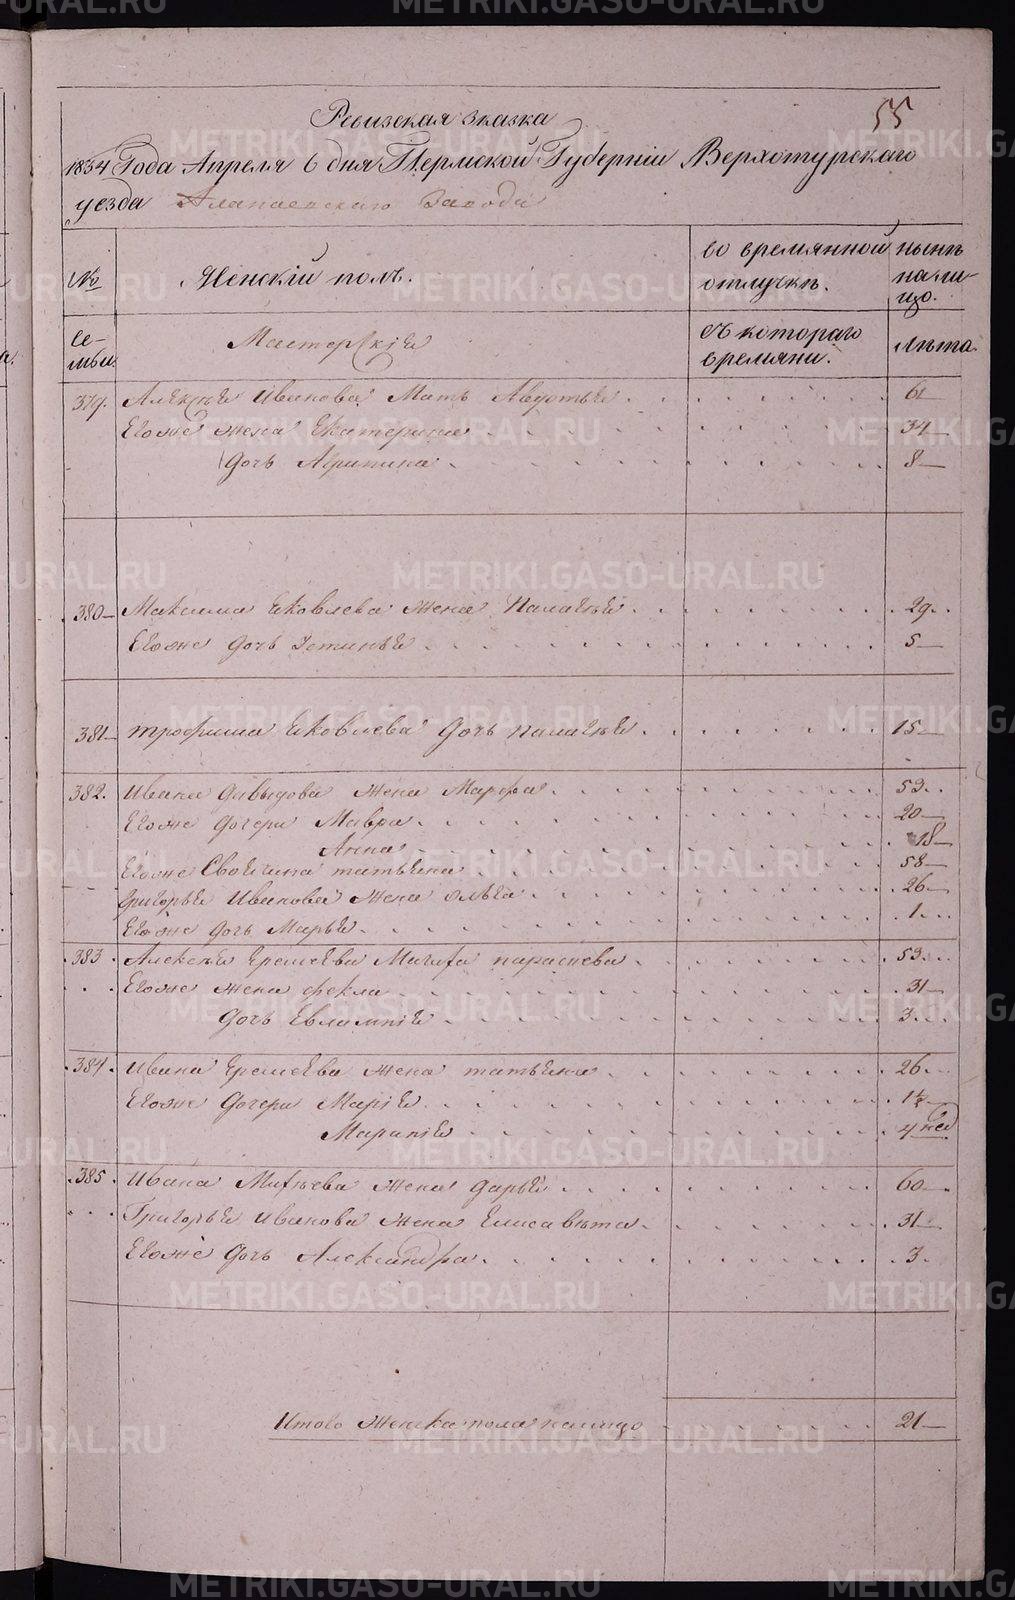 55
Ревизская сказка
1834 Года Апреля 6 дня Пермской Губернiи Верхотурскаго
уезда Алапаевскаго Завода
№ Женскiй полъ. во времянной отлучкѣ. нынѣ на ли-цо.
се-мьи. Мастерскiе съ котораго времяни. лѣта.
379. Алексѣя Иванова Мать Авдотья 61
Егоже жена Екатерина 34
дочь Агрипина 8
380 Максима Яковлева жена Палагѣя 29
Егоже дочь Устинья 5
381 трофима Яковлева дочь палагѣя 15
382. Ивана давыдова жена Марфа 53
Егоже дочери Мавра 20
Анна 18
Егоже Свойчина татьяна 58
григорья Иванова жена ольга 26
Егоже дочь Марья 1
383 Алексѣя Еремѣева Мачиха парасковья 53
Егоже жена фекла 31
дочь Евлампiя 3
384 Ивана Еремѣева жена татьяна 26
Егоже дочери Марiя 1½
4 нед
385 Ивана Михѣева жена дарья 60
Григорья Иванова жена Елисавѣта 31
Егоже дочь Александра 3
Итого женска пола налицо 21
METRIKI.GASO-URAL.RU